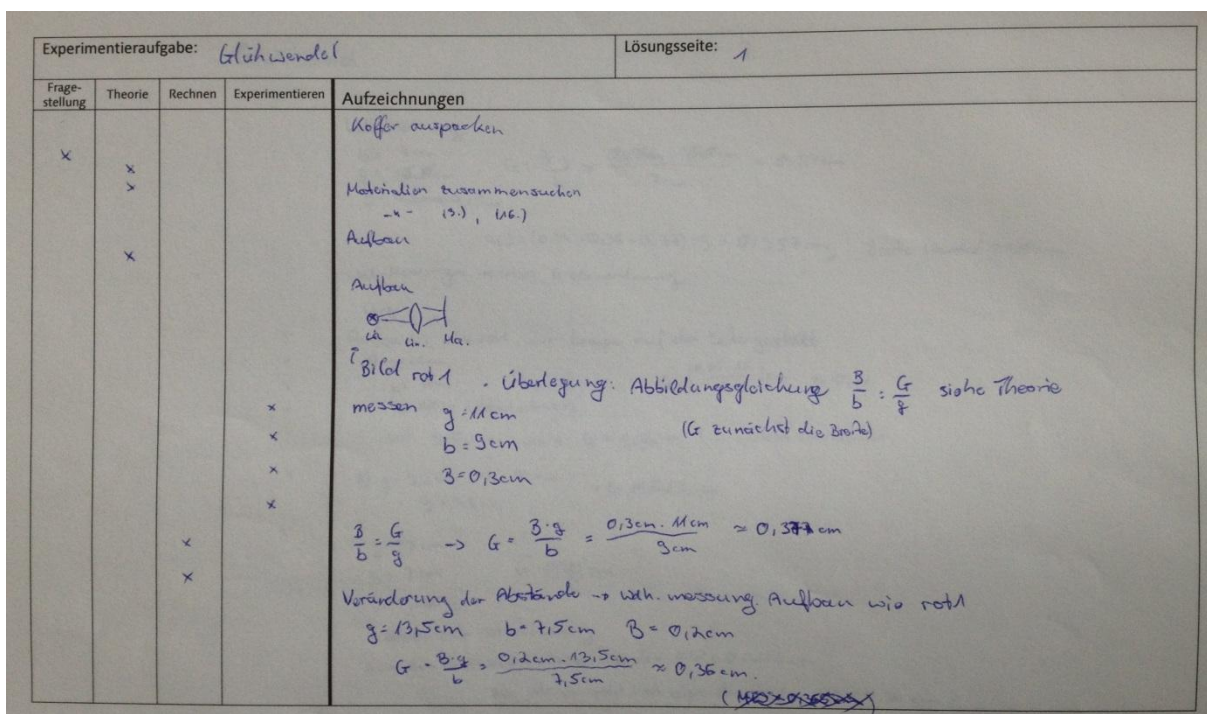 Experimentieraufgabe: Glühwendel Lösungsseite: 1
Frage-stellung Theorie Rechnen Experimentieren Aufzeichnungen
Koffer auspacken
x
x
x Materialien zusammensuchen
-"- (9.), (16.)
Aufbau
x
Aufbau
Lin. Ma.
Bild rot 1 . Überlegung: Abbildungsgleichung B/b = G/g siehe Theorie
x messen g = 11 cm (G zunächst die Breite)
x b = 9 cm
x B = 0,3 cm
x
x B/b = G/g -> G = B·g/b = 0,3cm · 11cm / 9cm ≈ 0,37 cm
x
Veränderung der Abstände -> wdh. messung. Aufbau wie rot 1
g = 13,5cm b = 7,5cm B = 0,2cm
G = B·g/b = 0,2cm · 13,5cm / 7,5cm ≈ 0,36 cm.